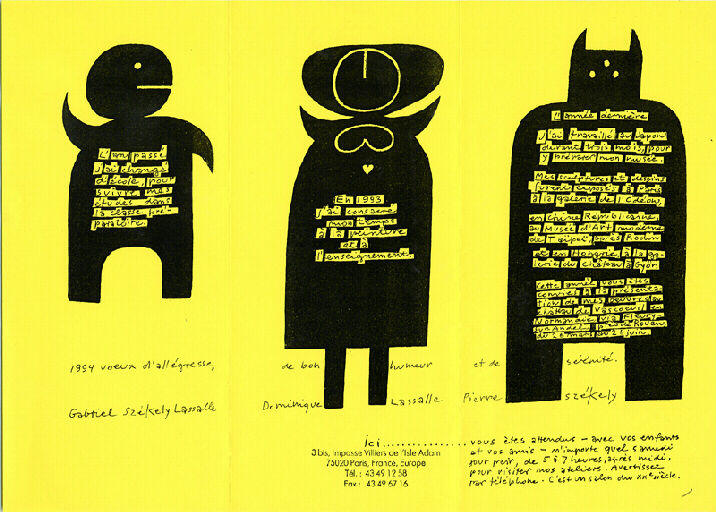 L'an passé
j'ai changé
d'école, pour
suivre mes
études dans
la classe pré-
paratoire.
En 1993
j'ai consacré
mon temps
à la peinture
et à
l'enseignement.
l'année dernière
j'ai travaillé au Japon
durant trois mois, pour
y présenter mon musée.
Mes sculptures et dessins
furent exposés à Paris
à la galerie de l'Odéon,
en Chine Républicaine
au Musée d'Art moderne
de Taipei, après Rodin
et en Hongrie à la ga-
lerie du château à Györ.
Cette année vous êtes
conviés à la présenta-
tion de mes oeuvres au
château de Vascoeuil en
Normandie, via Fleury
sur Andelle, près de Rouen
1994 voeux d'allégresse, de bon humeur et de sérénité.
Gabriel Székely Lassalle Dominique Lassalle Pierre Székely
Ici..................vous êtes attendus - avec vos enfants
et vos amis - n'importe quel samedi
pour voir, de 5 à 7 heures, après midi,
pour visiter nos ateliers. Avertissez
par téléphone. C'est un salon du XXe siècle.
3bis, Impasse Villiers de l'Isle Adam
75020 Paris, France, Europe
Tél.: 43 49 12 58
Fax: 43 49 67 16